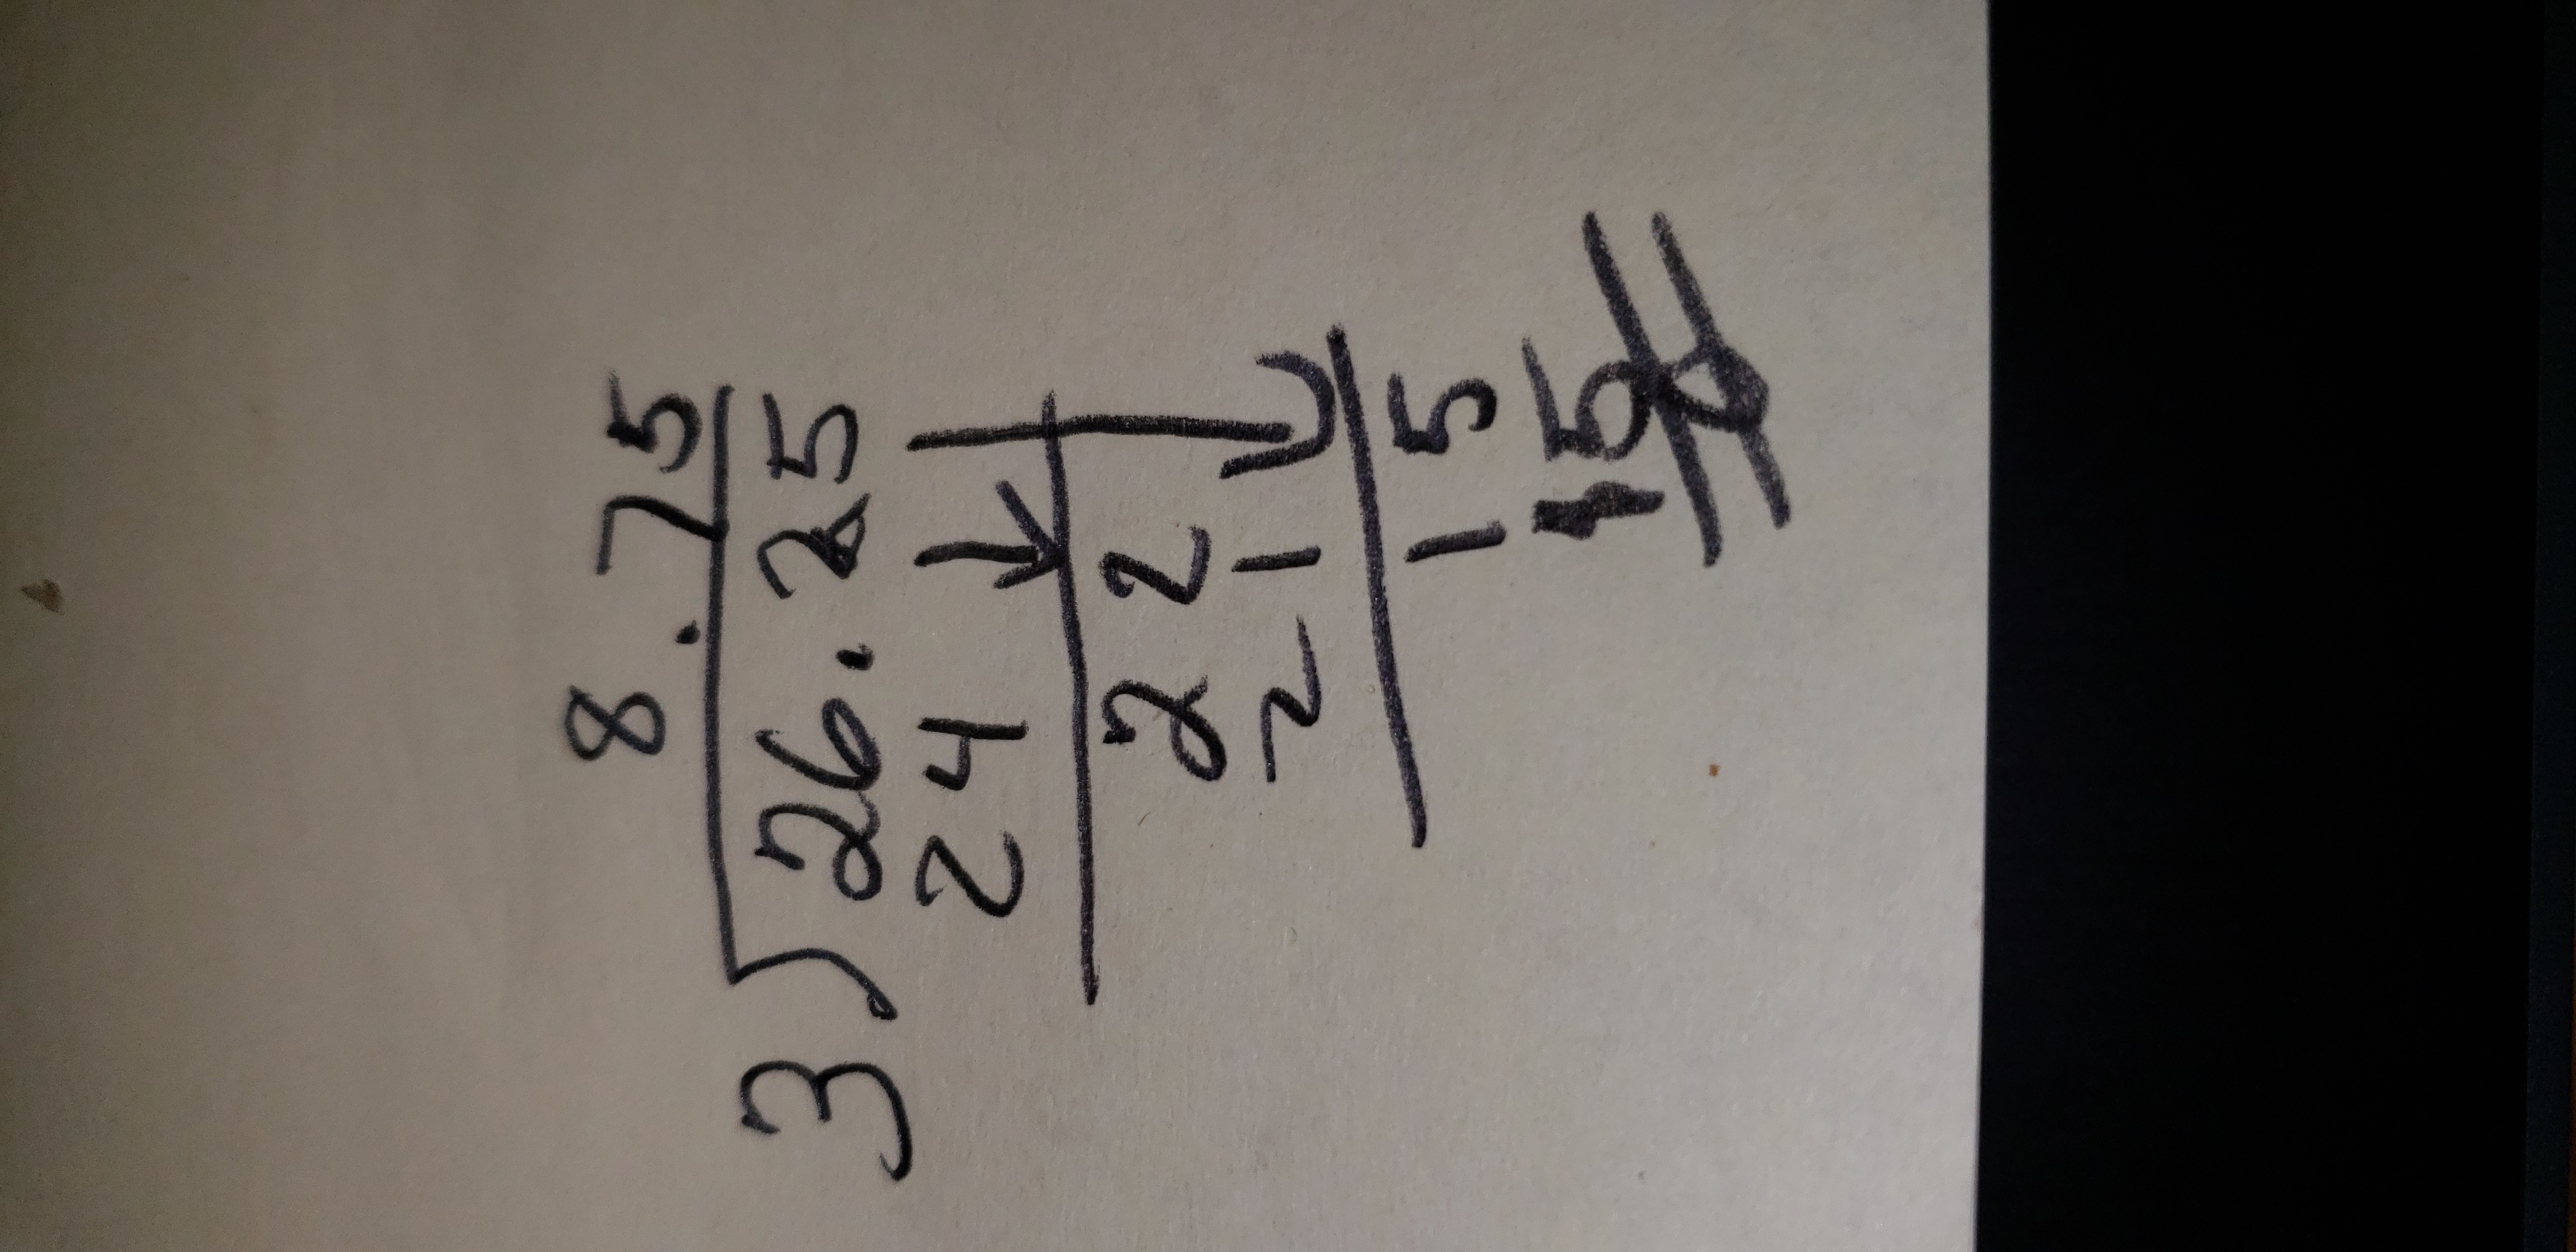 8.75
3)26.25
24
22
21
15
15
0